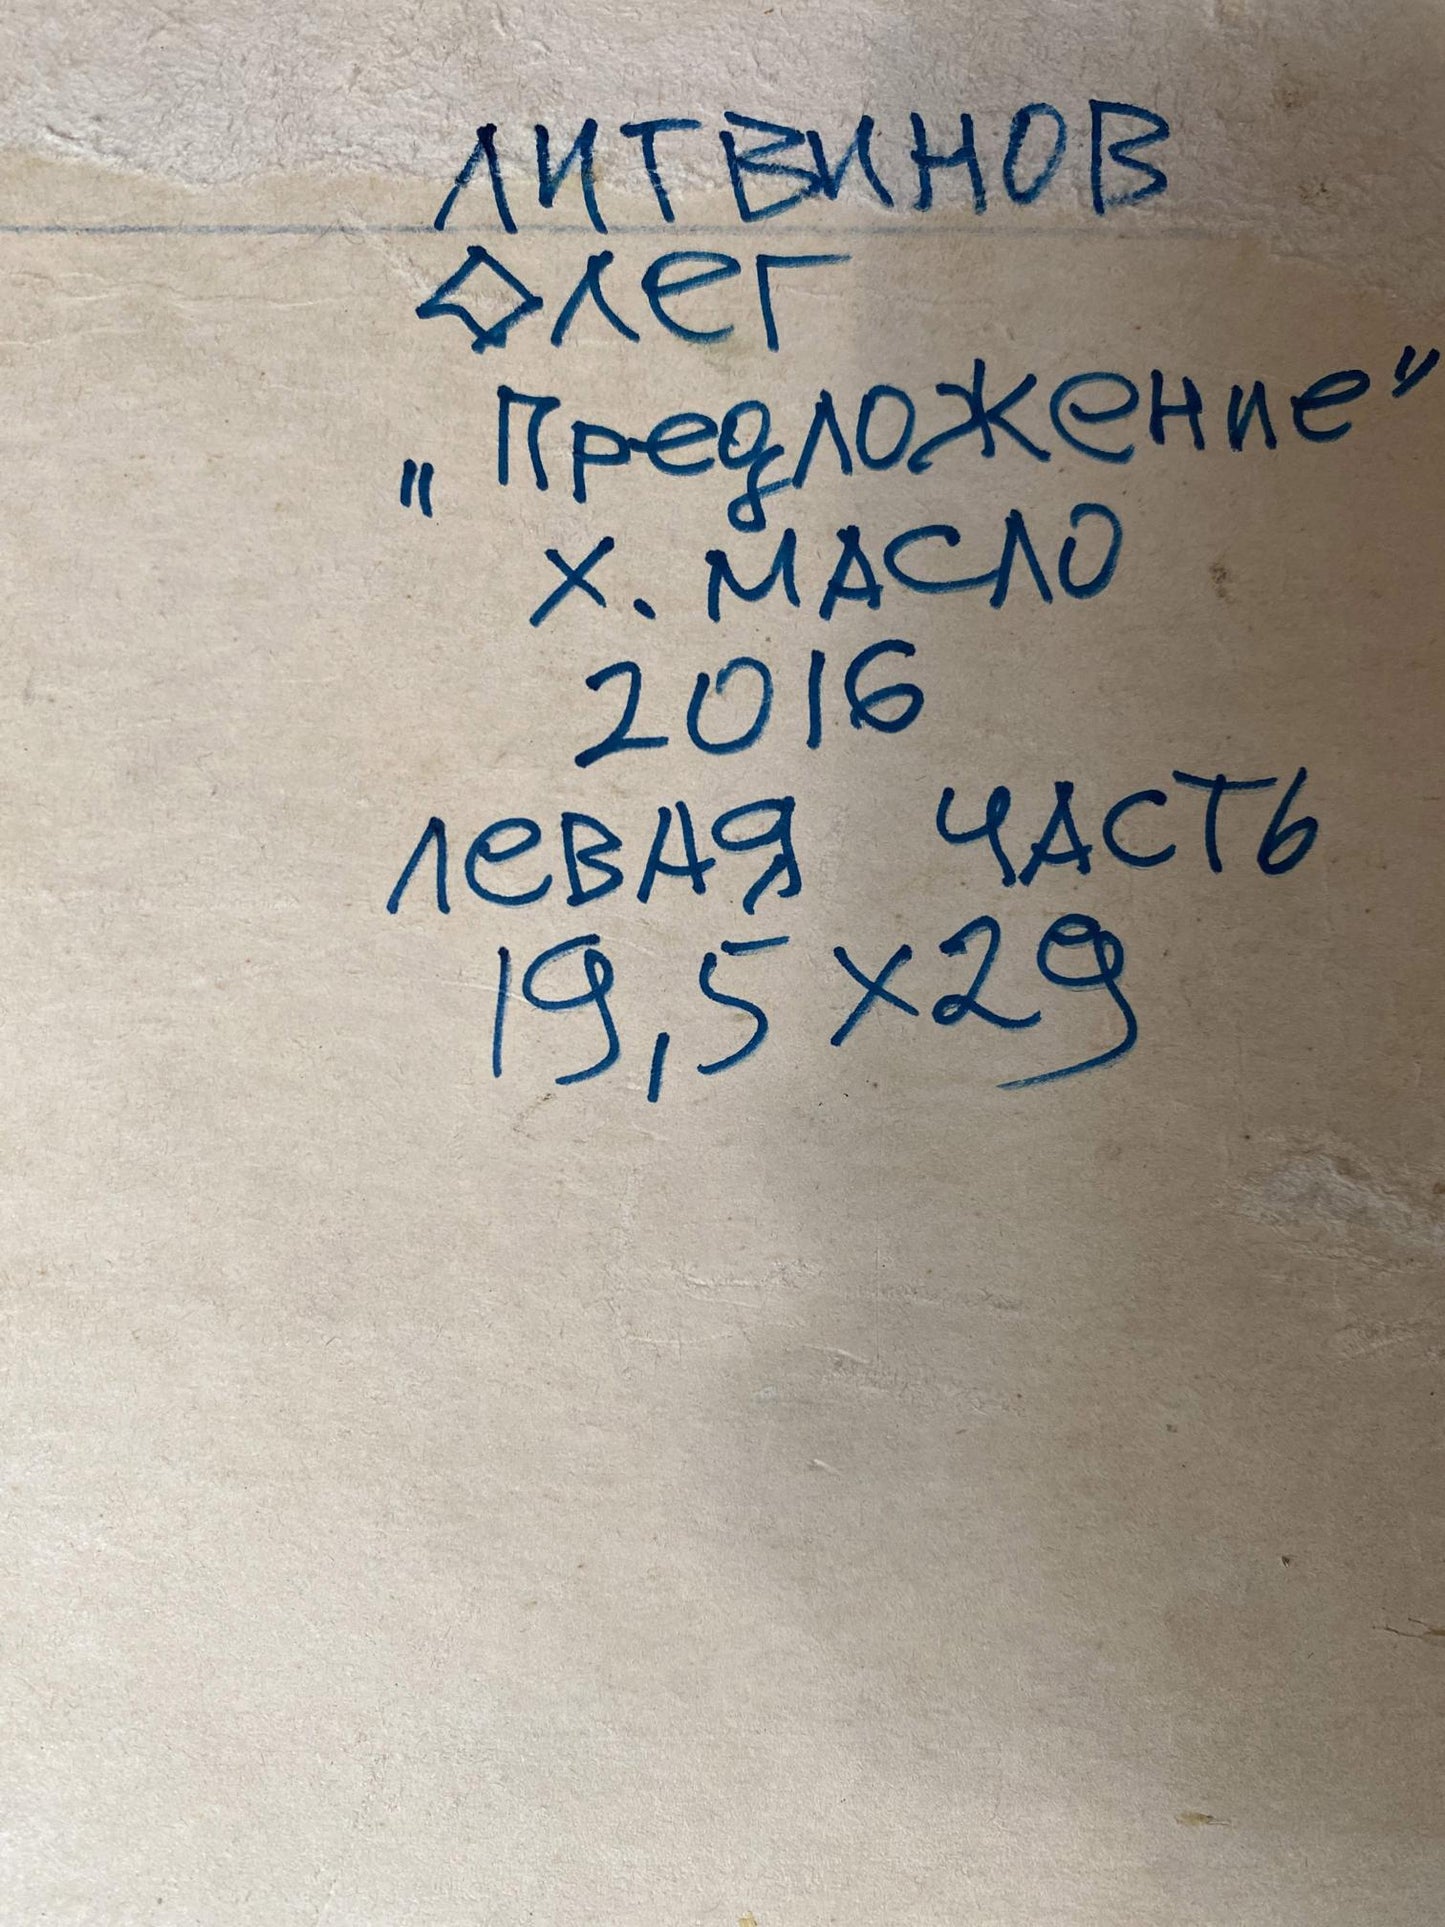 ЛИТВИНОВ
ОЛЕГ
„Предложение"
Х. МАСЛО
2016
ЛЕВАЯ ЧАСТЬ
19,5х29